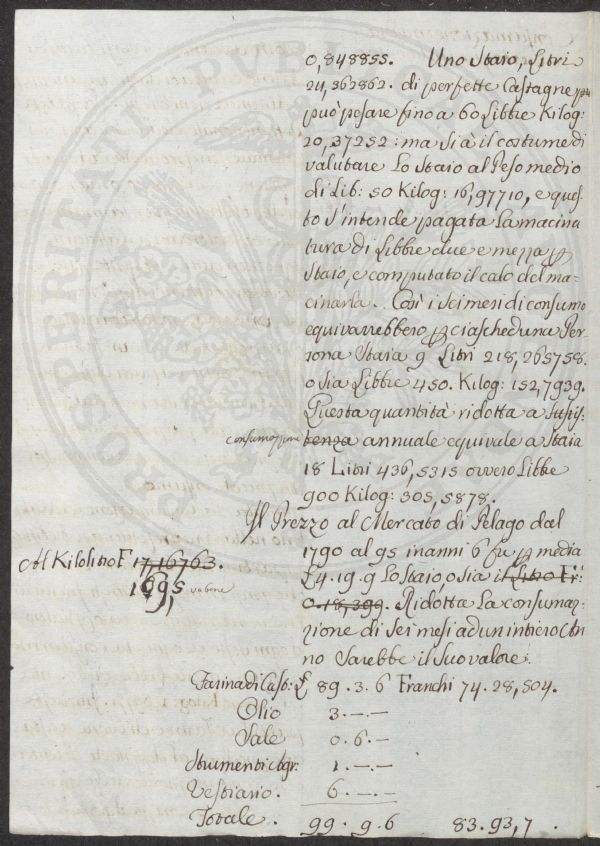 0,848855. Uno Staio, Litri
24,362862. di perfette Castagne
può pesare fino a 60 Libbre Kilog:
20,37252: ma si à il costume di
valutare Lo Staio al Peso medio
di Lib: 50 Kilog: 16,97710, e ques-
to s'intende pagata La macina
tura di Libbre due e mezza p
Staio, e computato il calo del ma-
cinarla. Così i sei mesi di consumo
equivarrebbero p ciascheduna Per-
sona Staia 9 Litri 218,265758.
o sia Libbre 450. Kilog: 152,7939.
Questa quantità ridotta a susis-
consumazione tenza annuale equivale a Staia
18 Litri 436,5315 ovvero Libbe
900 Kilog: 305,5878.
Il Prezzo al Mercato di Pelago dal
1790 al 95 in anni 6 fu p media
Al Kilolitro F 17,16763. £4.19.9 Lo Staio, o sia il Litro Fr:
1695 va bene 0.18,399. Ridotta La consumaz-
zione di sei mesi ad un intiero An
no Sarebbe il suo valore.
Farina di Cast: £ 89.3.6 Franchi 74.28,504.
Olio 3.-.-
Sale 0.6.-
Strumenti Agr: 1.-.-
Vestiario. 6.-.-
Totale. 99.9.6 83.93,7.
PROSPERITATI PUBLICAE